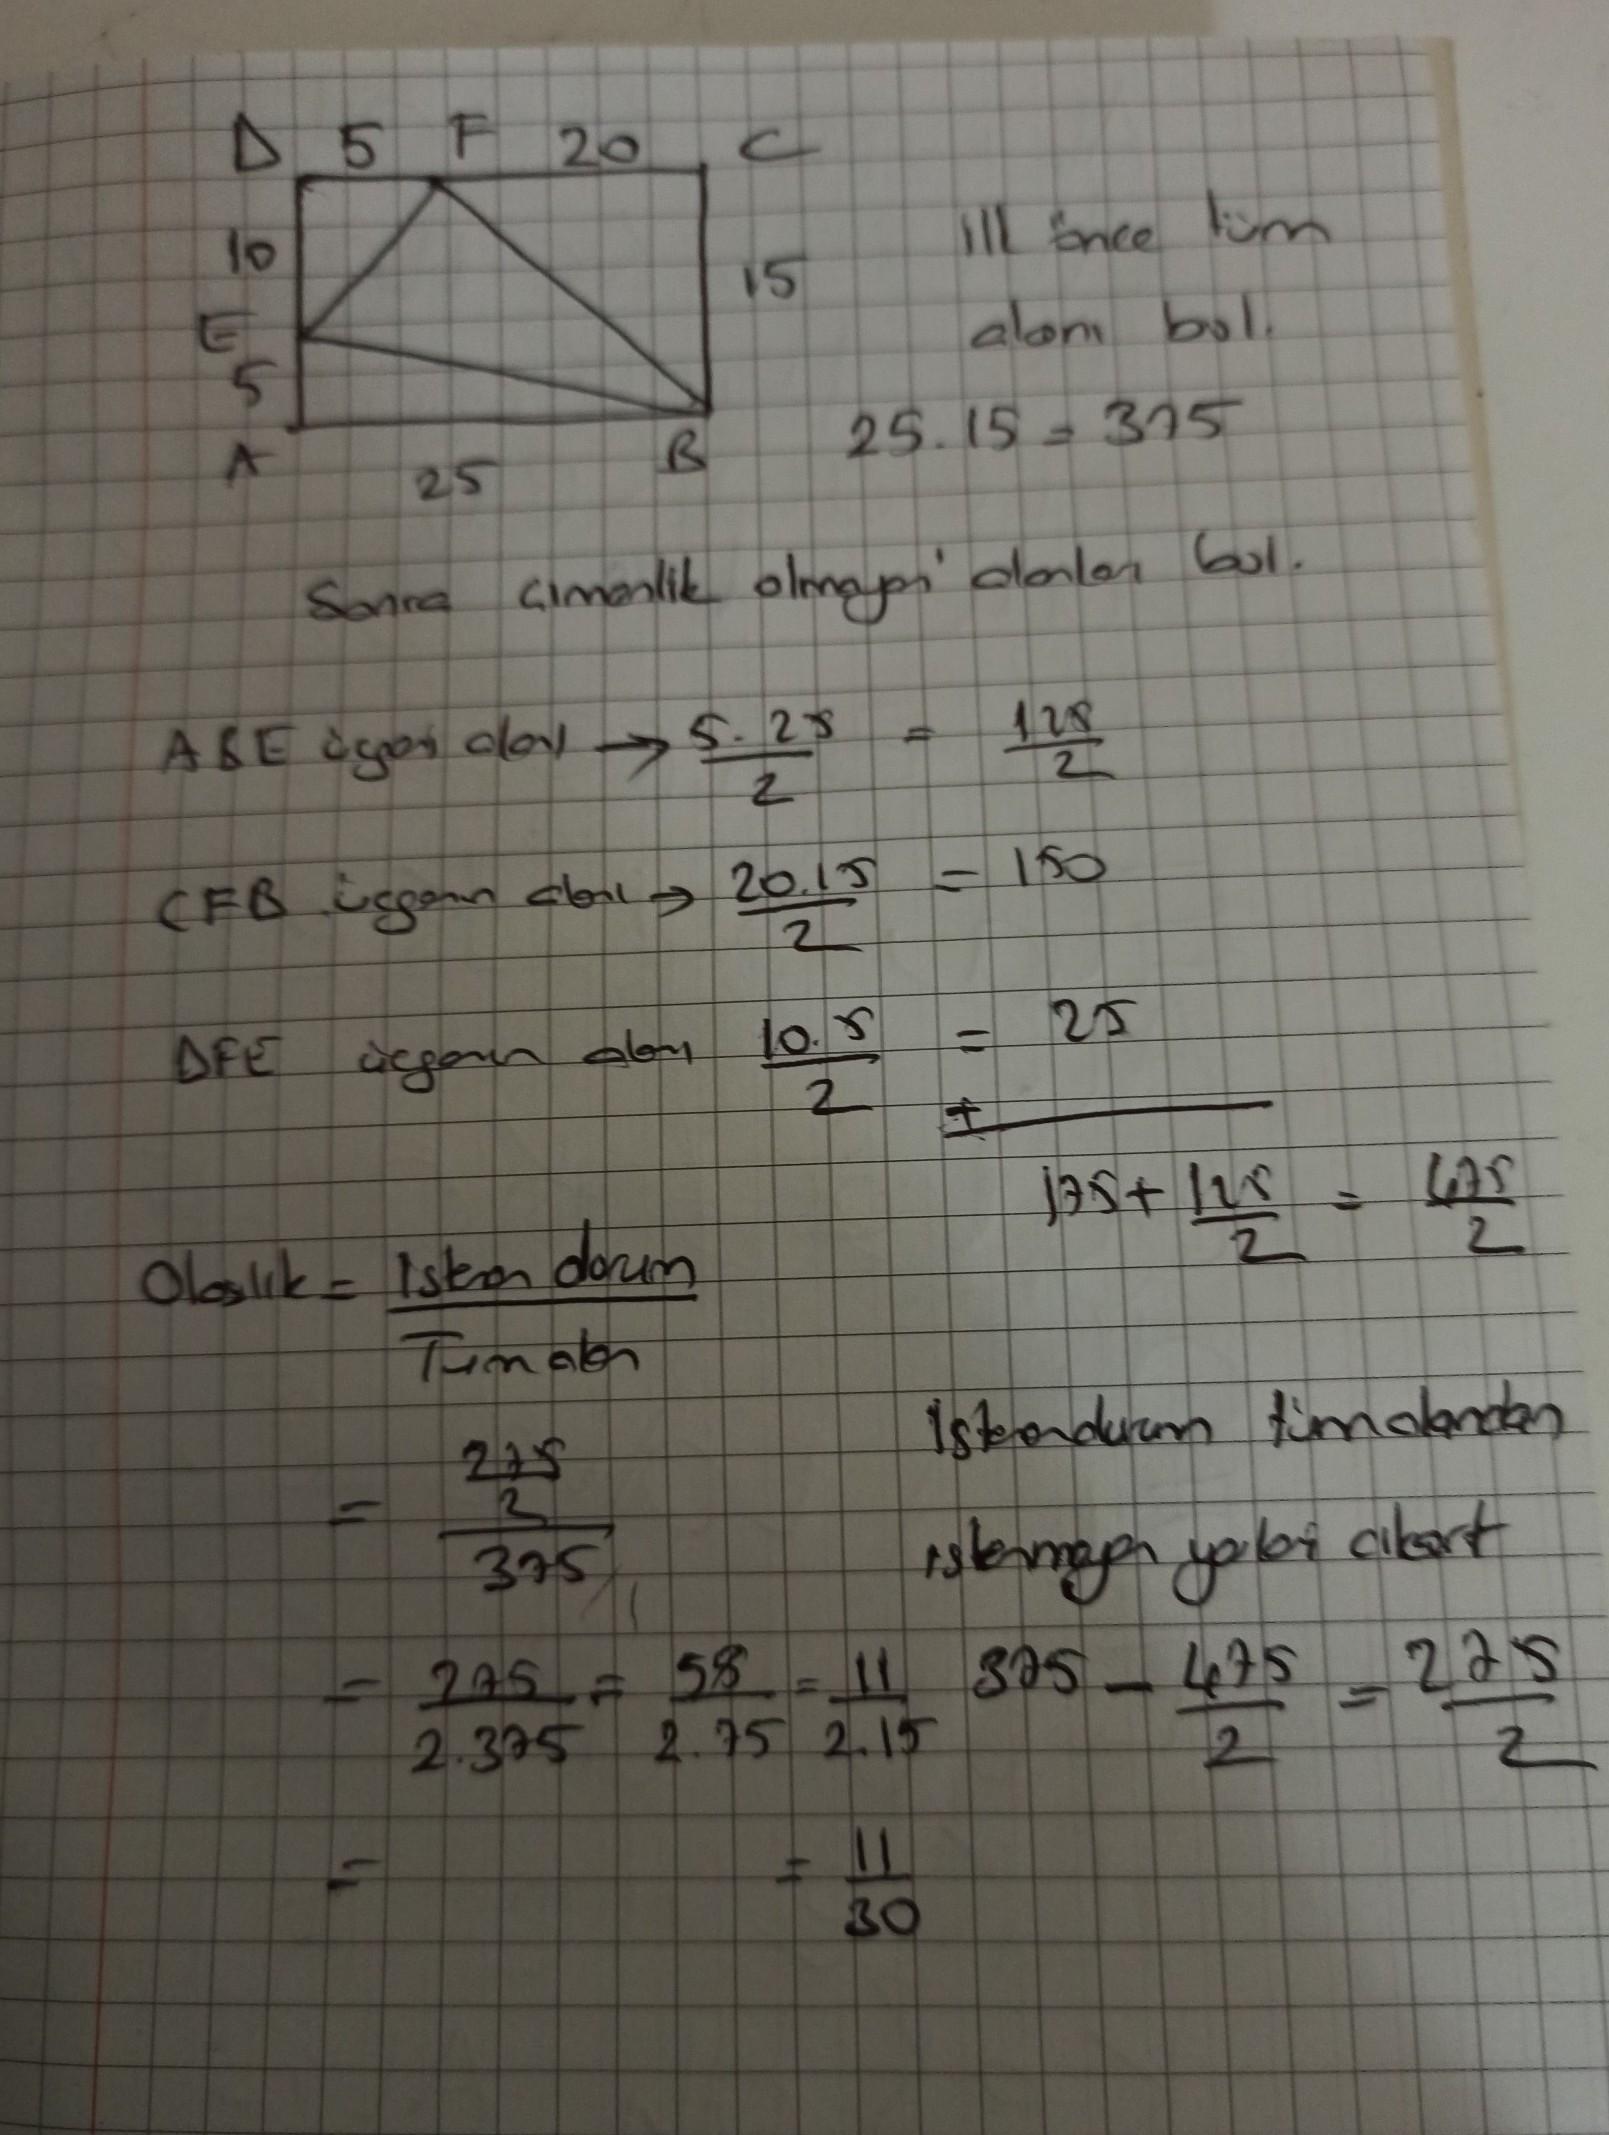 D 5 F 20 C
10
15
E
5
A 25 B
İlk önce tüm
alanı bul.
25.15 = 375
Sonra çimenlik olmayan alanları bul.
ABE üçgen alanı → 5.25/2 = 125/2
CFB üçgenin alanı → 20.15/2 = 150
DFE üçgenin alanı 10.5/2 = 25
+
175 + 125/2 = 475/2
Olasılık = İstenen durum / Tüm alan
İstenen durum tüm alandan
= 275/2 / 375
istenmeyen yerleri çıkart
= 275/2.375 = 55/2.75 = 11/2.15
375 - 475/2 = 275/2
= = 11/30